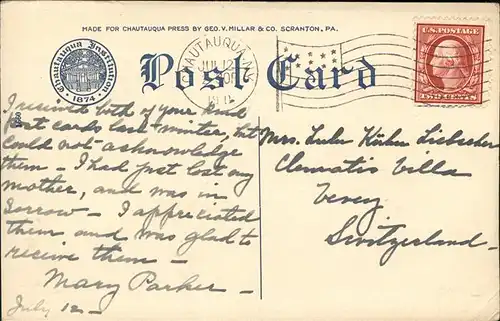 MADE FOR CHAUTAUQUA PRESS BY GEO. V. MILLAR & CO. SCRANTON, PA.
Chautauqua Institution
1874
Post Card
CHAUTAUQUA, N.Y.
JUL 12
U.S. POSTAGE
TWO CENTS
I received both of your kind
post cards last winter, but
could not acknowledge
them – I had just lost my
mother, and was in
sorrow – I appreciated
them and was glad to
receive them –
Mary Parker –
July 12 –
Mrs. Luhr Kühm Liebscher
Clematis Villa
Vevey
Switzerland –